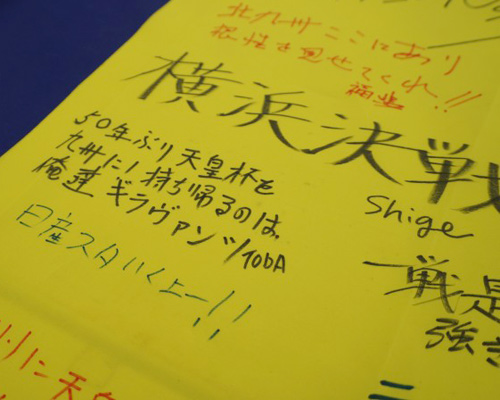 北九州ここにあり
根性を見せてくれ!!
横浜決戦
50年ぶり天皇杯を
九州に!持ち帰るのは、
俺達ギラヴァンツ!
Shige
日産スタいくよー!!
一戦是
強き
りに天皇